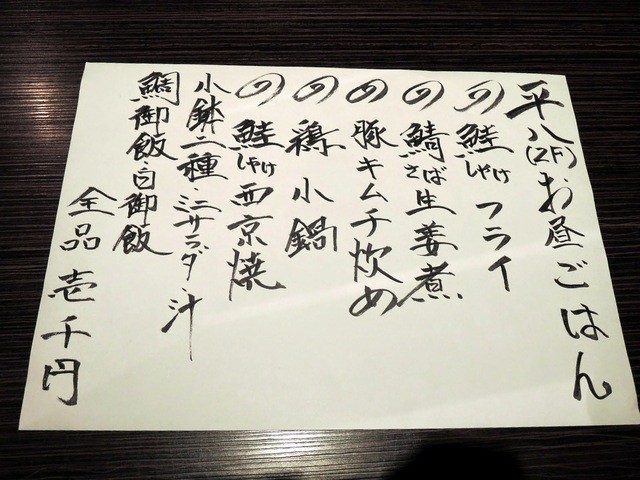 平八(2F)お昼ごはん
の 鮭フライ
しゃけ
の 鯖生姜煮
さば
の 豚キムチ炊め
の 鶏小鍋
の 鮭西京焼
しゃけ
小鉢二種・ミニサラダ・汁
鯛御飯・白御飯
全品 壱千円